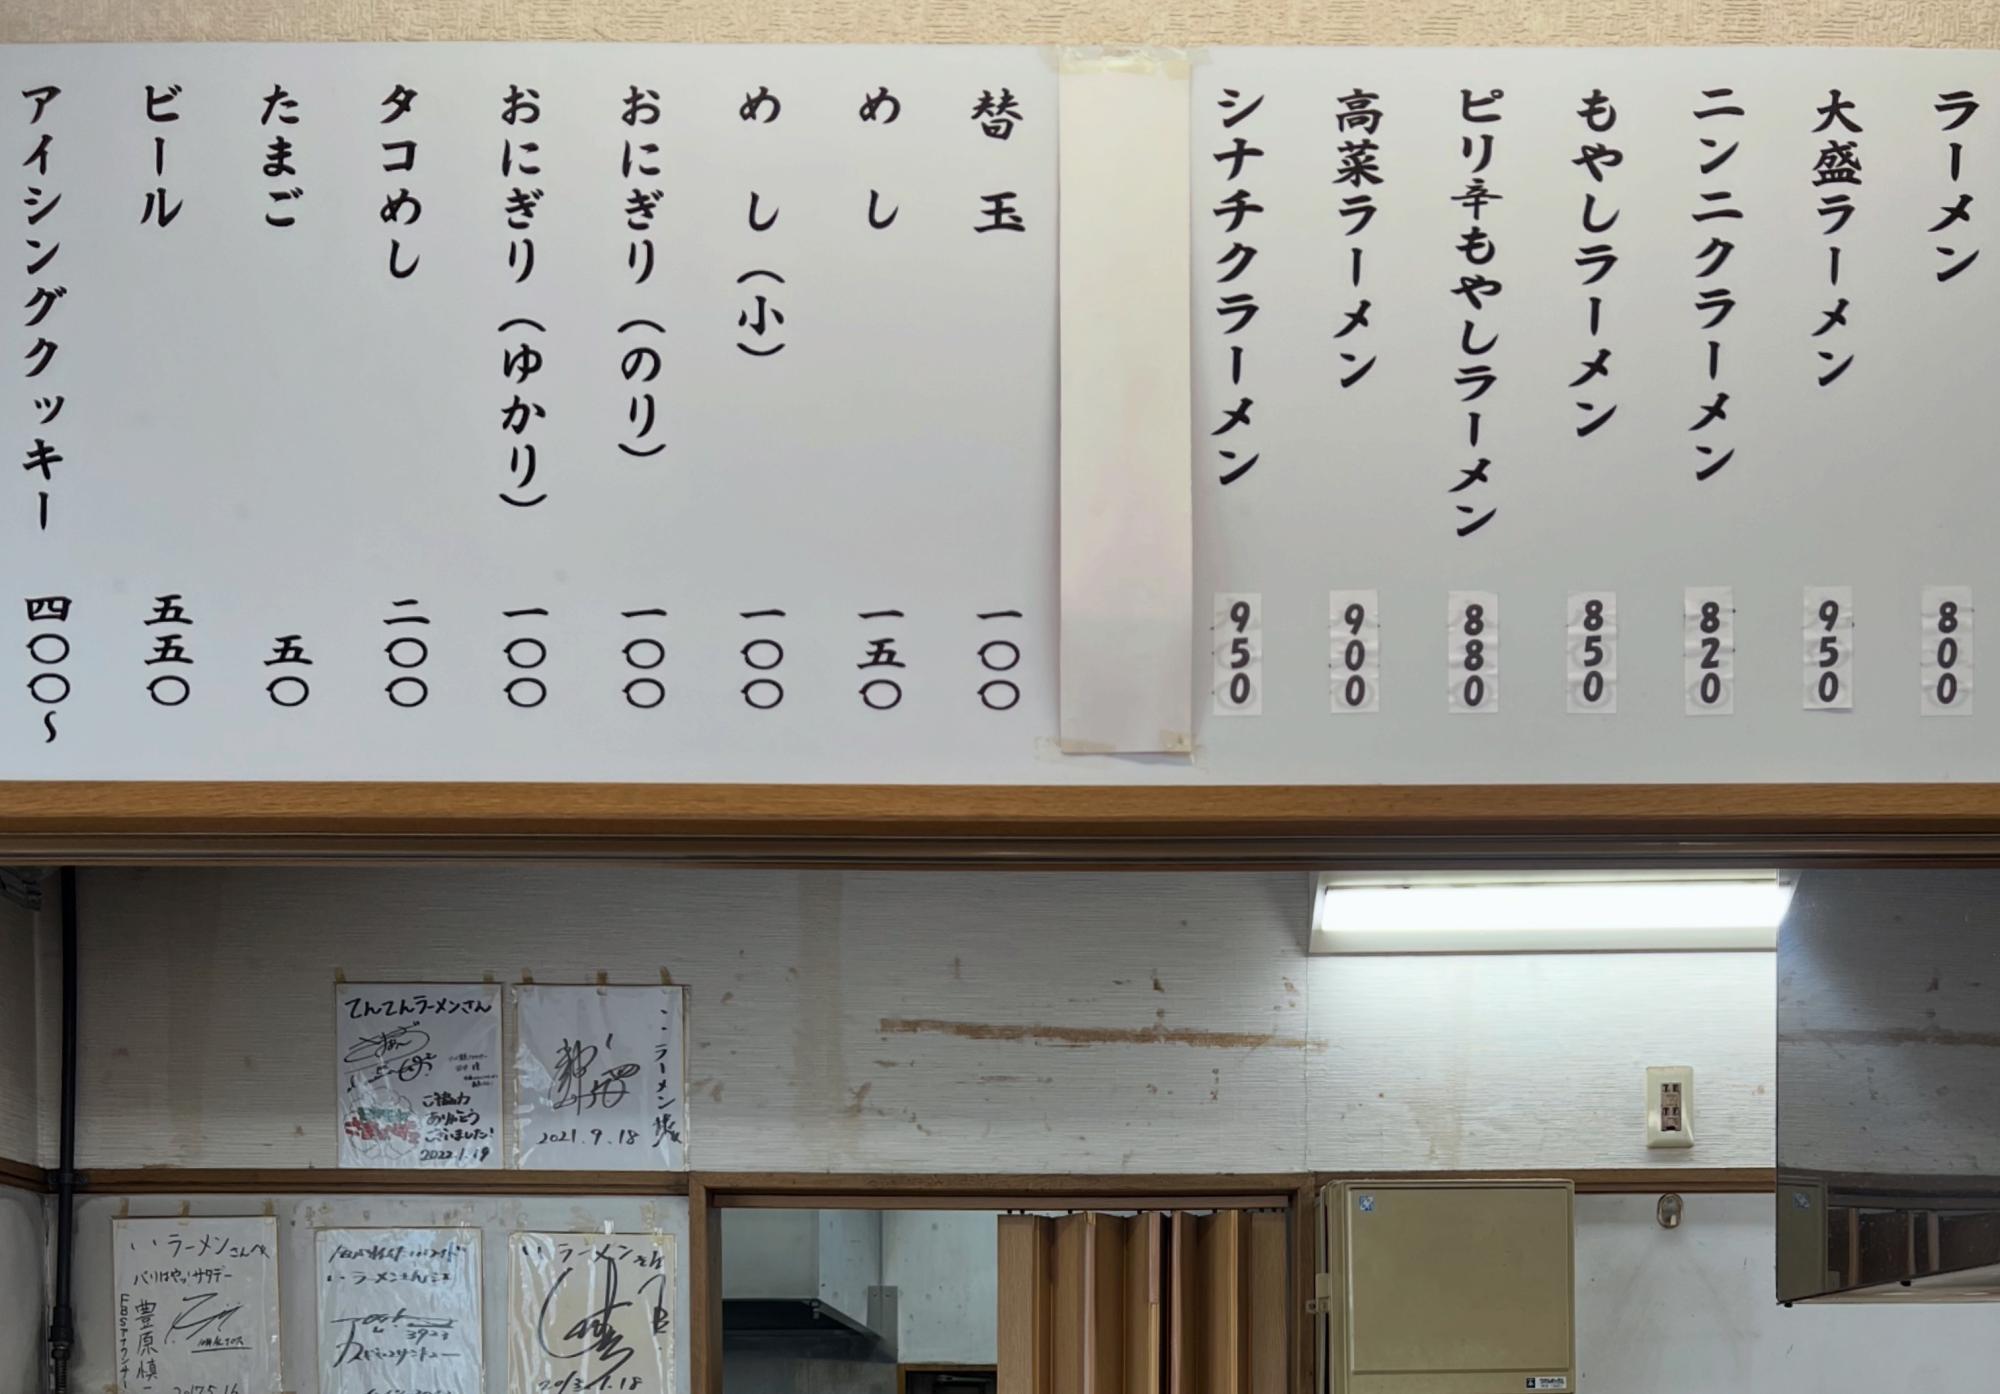 ラーメン 800
大盛ラーメン 950
ニンニクラーメン 820
もやしラーメン 850
ピリ辛もやしラーメン 880
高菜ラーメン 900
シナチクラーメン 950
替玉 一〇〇
めし 一五〇
めし(小) 一〇〇
おにぎり(のり) 一〇〇
おにぎり(ゆかり) 一〇〇
タコめし 二〇〇
たまご 五〇
ビール 五五〇
アイシングクッキー 四〇〇〜
てんてんラーメンさん
ご協力
ありがとう
ございました!
2022.1.19
ラーメン
2021.9.18
ラーメンさん
バリはやッ!サタデー
FBSアナウンサー
豊原慎
2017.5.16
ラーメンさん
3923
ラーメンさん